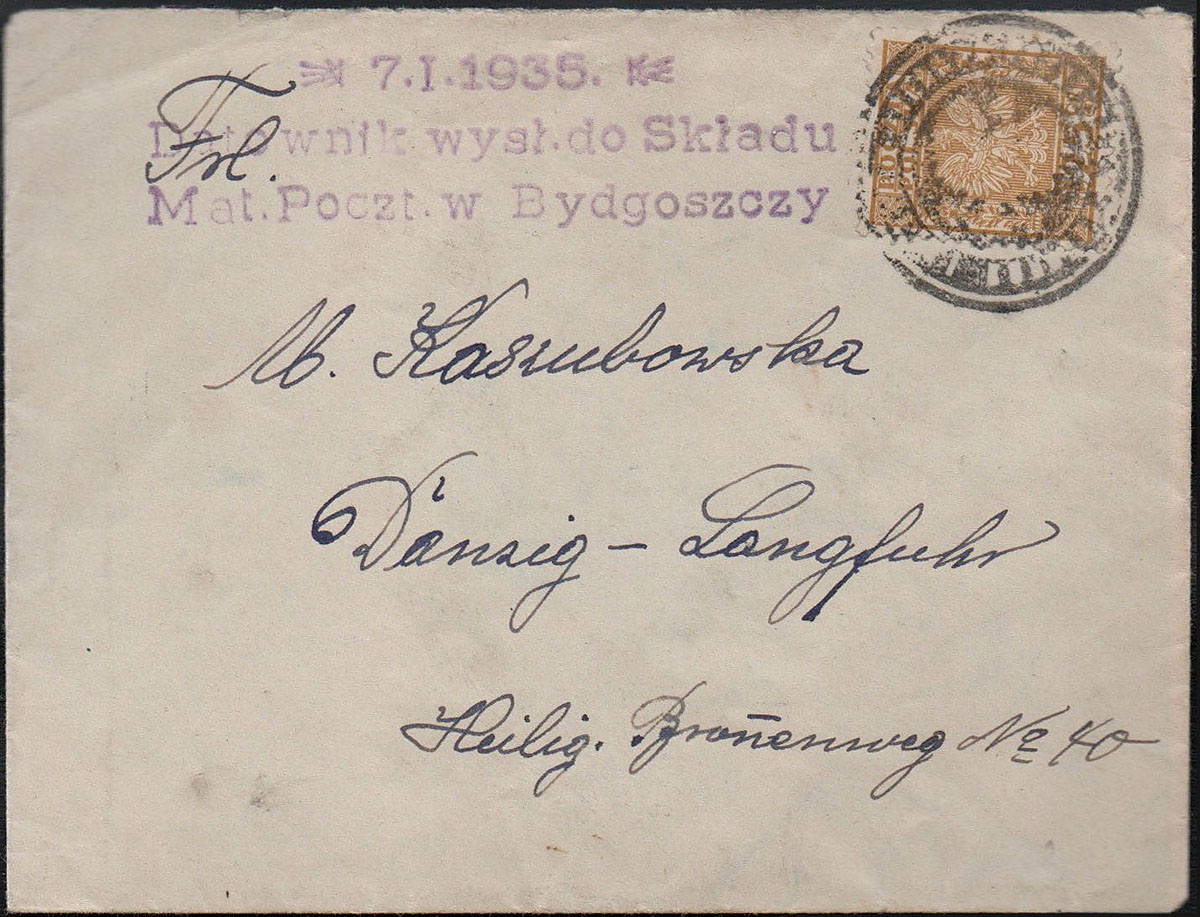 7.I.1935.
Datownik wysł. do Składu
Mat. Poczt. w Bydgoszczy
Frl.
M. Kaszubowska
Danzig – Langfuhr
Heilig. Bronenweg No 40